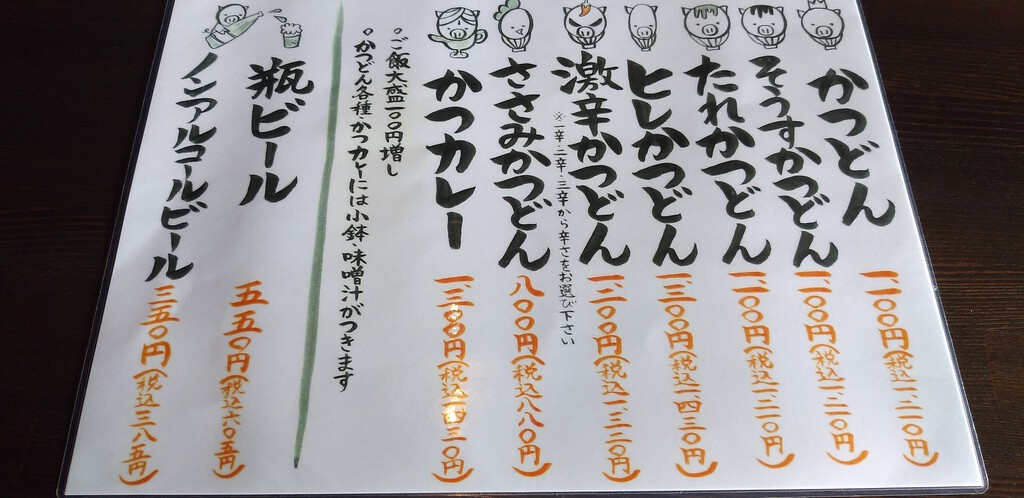 かつどん 一、一〇〇円（税込一、二一〇円）
そうすかつどん 一、一〇〇円（税込一、二一〇円）
たれかつどん 一、一〇〇円（税込一、二一〇円）
ヒレかつどん 一、三〇〇円（税込一、四三〇円）
激辛かつどん 一、二〇〇円（税込一、三二〇円）
※一辛・二辛・三辛から辛さをお選び下さい
ささみかつどん 八〇〇円（税込八八〇円）
かつカレー 一、三〇〇円（税込一、四三〇円）
○ご飯大盛一〇〇円増し
○かつどん各種・かつカレーには小鉢・味噌汁がつきます
瓶ビール 五五〇円（税込六〇五円）
ノンアルコールビール 三五〇円（税込三八五円）